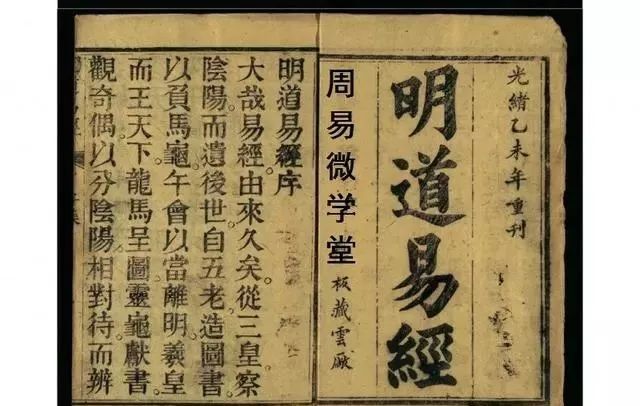 光緒乙未年重刊
明道易經
周易微学堂
板藏雲厰
明道易經序
大哉易經由來久矣。從三皇察
陰陽而遺後世。自五老造圖書。
以負馬龜。午會以當離明。羲皇
而王天下。龍馬呈圖。靈龜獻書。
觀奇偶以分陰陽相對待而辨